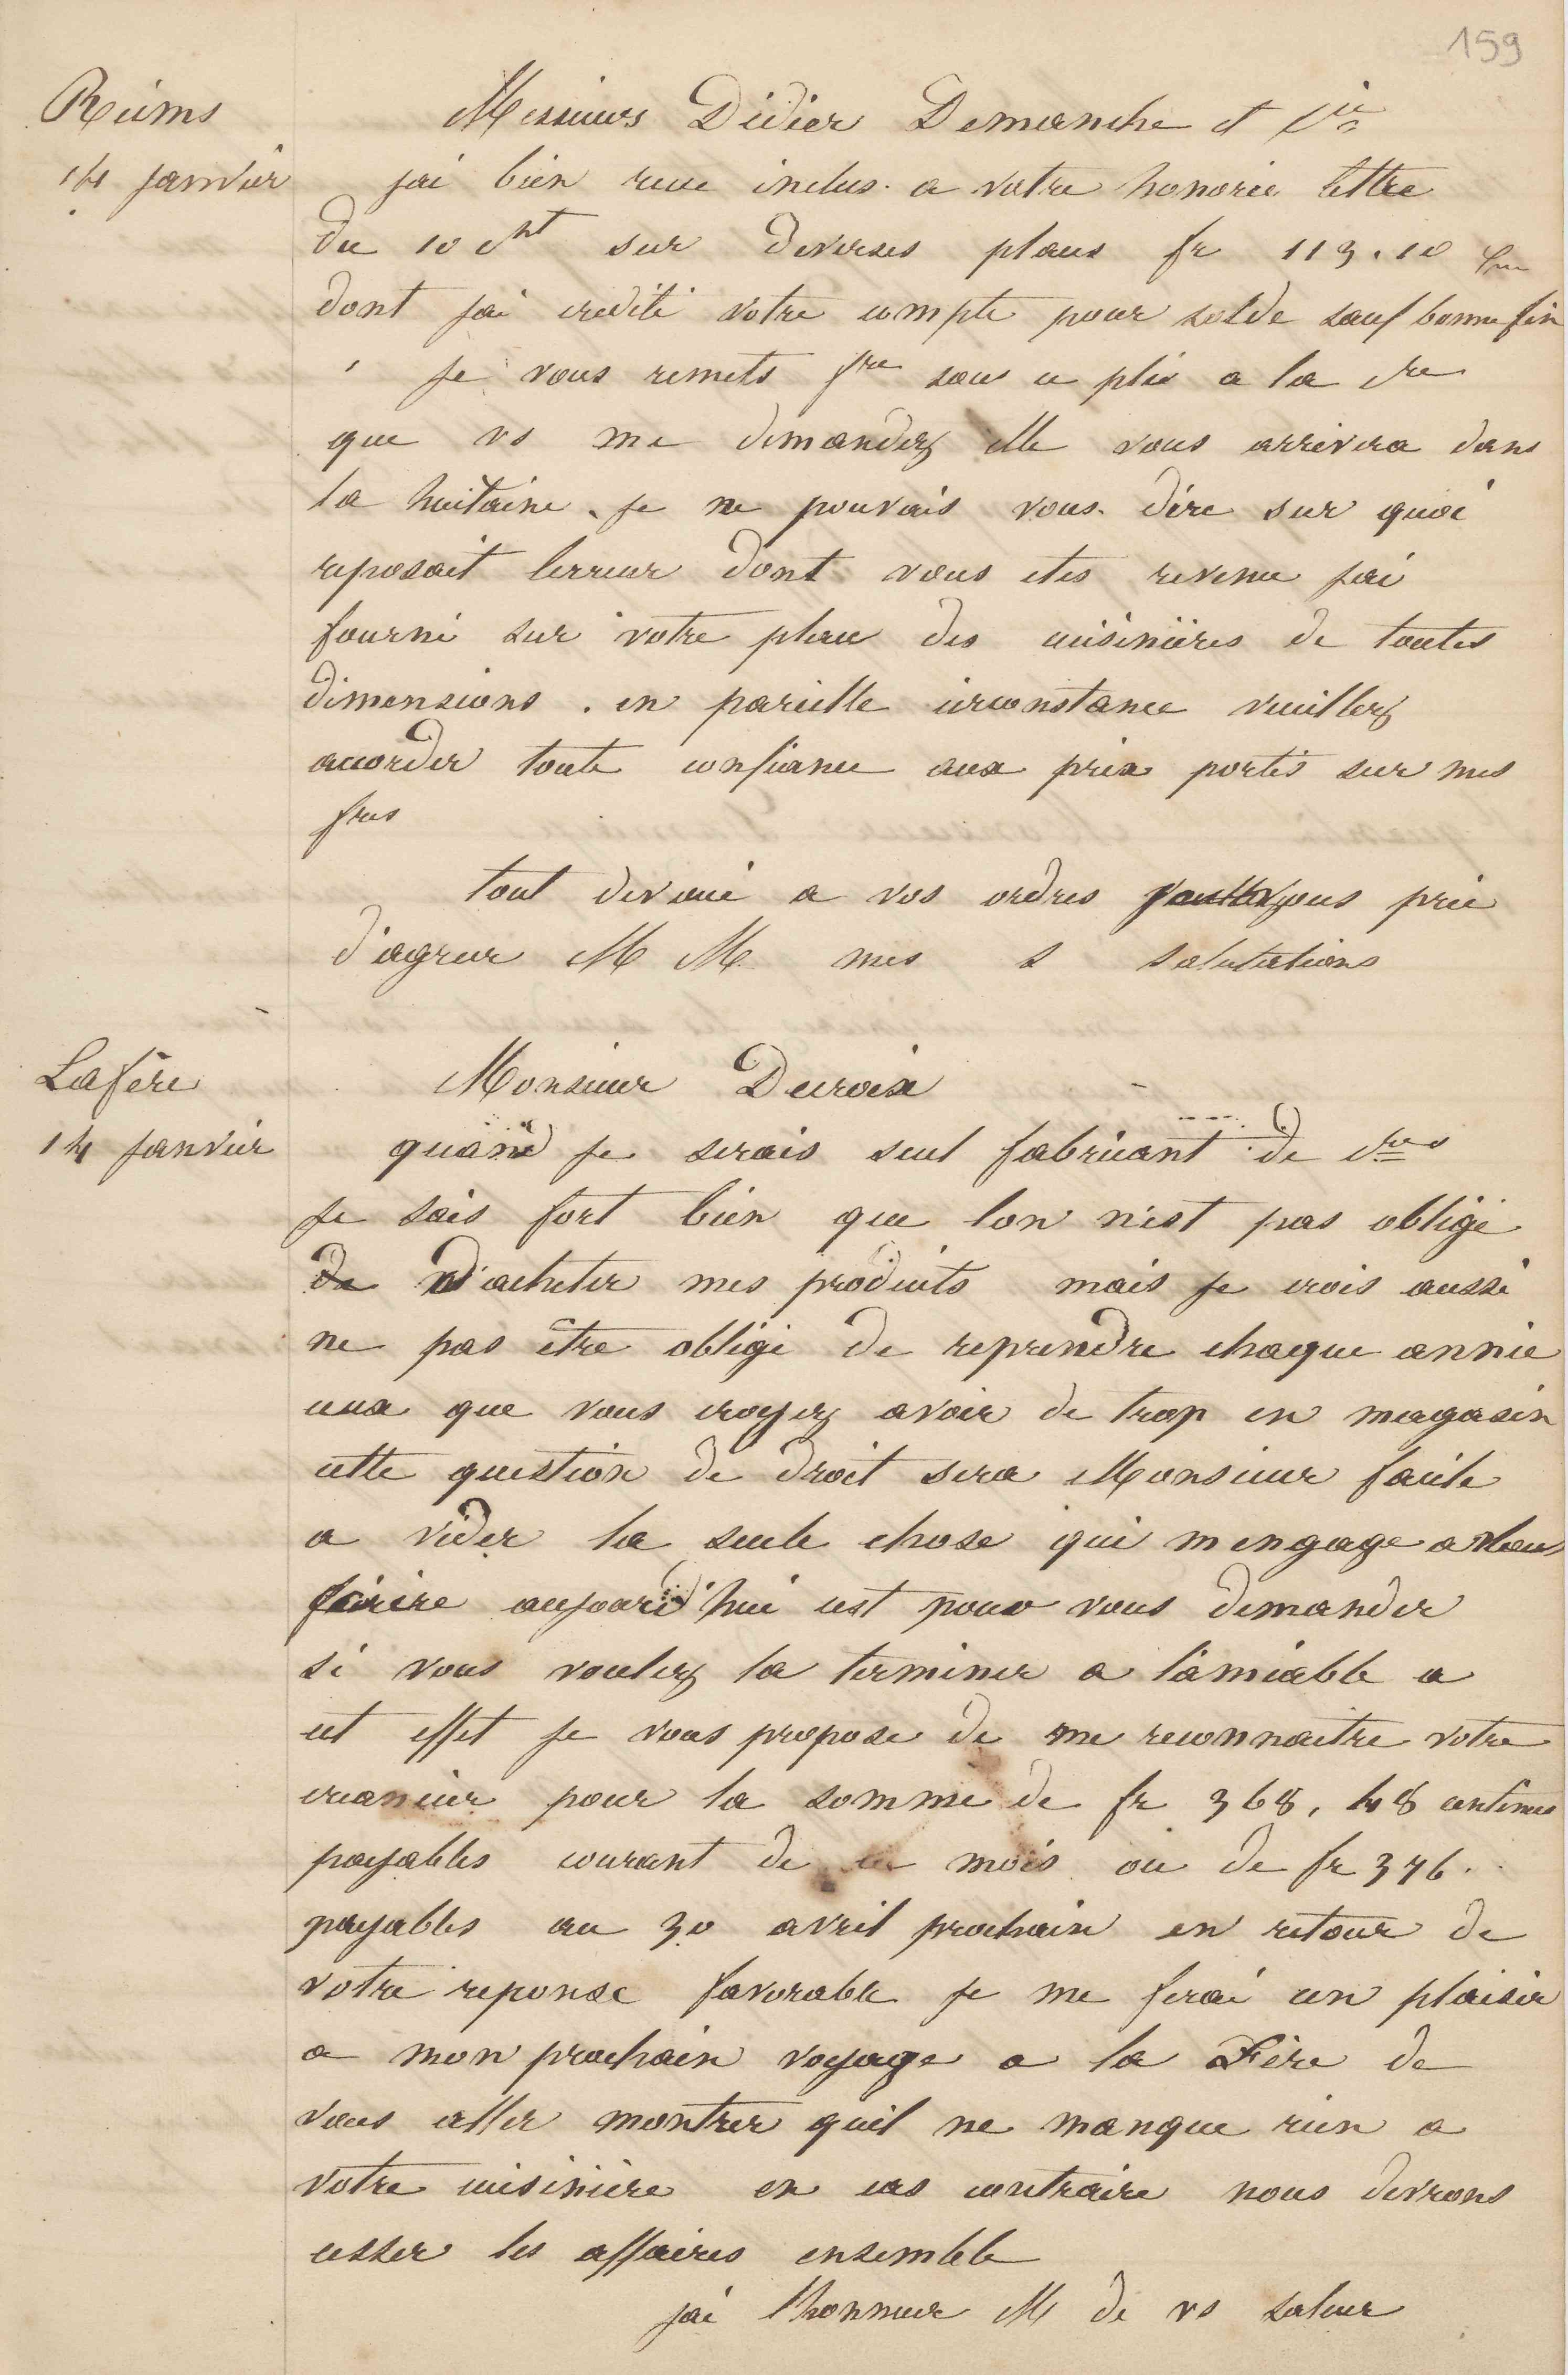 159
Reims
14 janvier
Messieurs Didier Demanche et Cie
jai bien recue inclus a votre honorée lettre
du 10 ct sur diverses places fr 113.10
dont jai credité votre compte pour solde sauf bonne fin
je vous remets fre sous ce plis a la cre
que vs me demandez elle vous arrivera dans
la huitaine. je ne pouvais vous dire sur quoi
reposait lerreur dont vous etes revenu jai
fourni sur votre place des cuisinières de toutes
dimensions. en pareille circonstance veuillez
accorder toute confiance aux prix portés sur mes
fres
tout devoué a vos ordres vous prie
d'agreer M M mes s salutations
Lafère
14 janvier
Monsieur Decroix
quand je serais seul fabricant de cres
je sais fort bien que lon n'est pas obligé
de d'acheter mes produits mais je crois aussi
ne pas être obligé de reprendre chaque année
ceux que vous croyez avoir de trop en magasin
cette question de droit sera Monsieur facile
a vider la seule chose qui mengage a vous
écrire aujourd'hui cest pour vous demander
si vous voulez la terminer a lamiable a
cet effet je vous propose de me reconnaitre votre
creancier pour la somme de fr 368,48 centimes
payables courant de ce mois ou de fr 376.
payables au 30 avril prochain en retour de
votre reponse favorable je me ferai un plaisir
a mon prochain voyage a la Fère de
vous aller montrer quil ne manque rien a
votre cuisinière en cas contraire nous devrons
cesser les affaires ensemble
jai lhonneur M de vs saluer